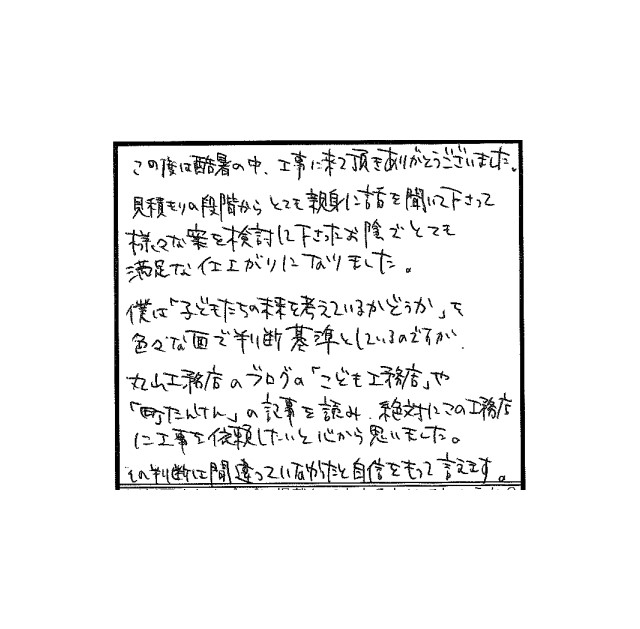 この度は酷暑の中、工事に来て頂きありがとうございました。
見積もりの段階からとても親身に話を聞いて下さって
様々な案を検討して下さったお陰でとても
満足な仕上がりになりました。
僕は「子どもたちの未来を考えているかどうか」を
色々な面で判断基準としているのですが、
丸山工務店のブログの「こども工務店」や
「町たんけん」の記事を読み、絶対にこの工務店
に工事を依頼したいと心から思いました。
その判断は間違っていなかったと自信をもって言えます。